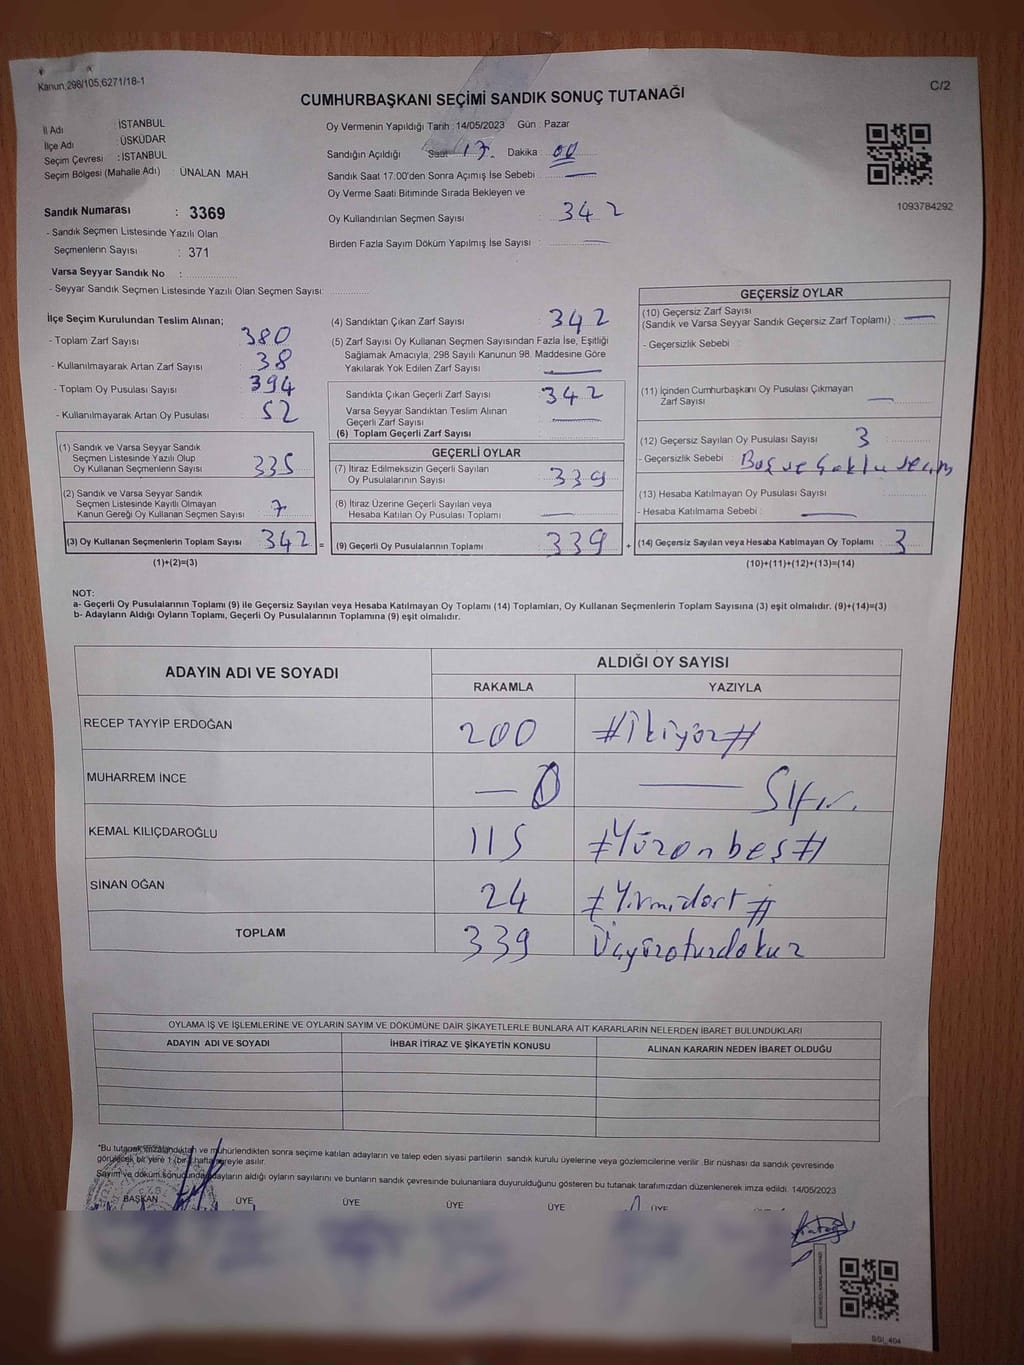 Kanun,298/105,6271/18-1
C/2
CUMHURBAŞKANI SEÇİMİ SANDIK SONUÇ TUTANAĞI
İl Adı : İSTANBUL
İlçe Adı : ÜSKÜDAR
Seçim Çevresi : İSTANBUL
Seçim Bölgesi (Mahalle Adı) : ÜNALAN MAH.
Sandık Numarası : 3369
- Sandık Seçmen Listesinde Yazılı Olan
Seçmenlerin Sayısı : 371
Varsa Seyyar Sandık No :
- Seyyar Sandık Seçmen Listesinde Yazılı Olan Seçmen Sayısı:
Oy Vermenin Yapıldığı Tarih : 14/05/2023 Gün : Pazar
Sandığın Açıldığı Saat 17. Dakika : 00
Sandık Saat 17.00'den Sonra Açımış İse Sebebi :
Oy Verme Saati Bitiminde Sırada Bekleyen ve
Oy Kullandırılan Seçmen Sayısı : 342
Birden Fazla Sayım Döküm Yapılmış İse Sayısı :
1093784292
İlçe Seçim Kurulundan Teslim Alınan;
- Toplam Zarf Sayısı 380
- Kullanılmayarak Artan Zarf Sayısı 38
- Toplam Oy Pusulası Sayısı 394
- Kullanılmayarak Artan Oy Pusulası 52
(1) Sandık ve Varsa Seyyar Sandık
Seçmen Listesinde Yazılı Olup
Oy Kullanan Seçmenlerin Sayısı 335
(2) Sandık ve Varsa Seyyar Sandık
Seçmen Listesinde Kayıtlı Olmayan
Kanun Gereği Oy Kullanan Seçmen Sayısı 7
(3) Oy Kullanan Seçmenlerin Toplam Sayısı 342 =
(1)+(2)=(3)
(4) Sandıktan Çıkan Zarf Sayısı 342
(5) Zarf Sayısı Oy Kullanan Seçmen Sayısından Fazla İse, Eşitliği
Sağlamak Amacıyla, 298 Sayılı Kanunun 98. Maddesine Göre
Yakılarak Yok Edilen Zarf Sayısı
Sandıkta Çıkan Geçerli Zarf Sayısı 342
Varsa Seyyar Sandıktan Teslim Alınan
Geçerli Zarf Sayısı
(6) Toplam Geçerli Zarf Sayısı
GEÇERLİ OYLAR
(7) İtiraz Edilmeksizin Geçerli Sayılan
Oy Pusulalarının Sayısı 339
(8) İtiraz Üzerine Geçerli Sayılan veya
Hesaba Katılan Oy Pusulası Toplamı
(9) Geçerli Oy Pusulalarının Toplamı 339 +
GEÇERSİZ OYLAR
(10) Geçersiz Zarf Sayısı
(Sandık ve Varsa Seyyar Sandık Geçersiz Zarf Toplamı) :
- Geçersizlik Sebebi :
(11) İçinden Cumhurbaşkanı Oy Pusulası Çıkmayan
Zarf Sayısı
(12) Geçersiz Sayılan Oy Pusulası Sayısı 3
- Geçersizlik Sebebi : Boş ve Çoklu seçim
(13) Hesaba Katılmayan Oy Pusulası Sayısı
- Hesaba Katılmama Sebebi :
(14) Geçersiz Sayılan veya Hesaba Katılmayan Oy Toplamı : 3
(10)+(11)+(12)+(13)=(14)
NOT:
a- Geçerli Oy Pusulalarının Toplamı (9) ile Geçersiz Sayılan veya Hesaba Katılmayan Oy Toplamı (14) Toplamları, Oy Kullanan Seçmenlerin Toplam Sayısına (3) eşit olmalıdır. (9)+(14)=(3)
b- Adayların Aldığı Oyların Toplamı, Geçerli Oy Pusulalarının Toplamına (9) eşit olmalıdır.
ADAYIN ADI VE SOYADI
ALDIĞI OY SAYISI
RAKAMLA YAZIYLA
RECEP TAYYİP ERDOĞAN 200 #İkiyüz#
MUHARREM İNCE — 0 — Sıfır.
KEMAL KILIÇDAROĞLU 115 #Yüzonbeş#
SİNAN OĞAN 24 #Yirmidört#
TOPLAM 339 Üçyüzotuzdokuz
OYLAMA İŞ VE İŞLEMLERİNE VE OYLARIN SAYIM VE DÖKÜMÜNE DAİR ŞİKAYETLERLE BUNLARA AİT KARARLARIN NELERDEN İBARET BULUNDUKLARI
ADAYIN ADI VE SOYADI İHBAR İTİRAZ VE ŞİKAYETİN KONUSU ALINAN KARARIN NEDEN İBARET OLDUĞU
*Bu tutanak imzalandıktan ve mühürlendikten sonra seçime katılan adayların ve talep eden siyasi partilerin sandık kurulu üyelerine veya gözlemcilerine verilir .Bir nüshası da sandık çevresinde
görülecek bir yere 1 (bir) hafta süreyle asılır.
Sayım ve döküm sonucunda adayların aldığı oyların sayılarını ve bunların sandık çevresinde bulunanlara duyurulduğunu gösteren bu tutanak tarafımızdan düzenlenerek imza edildi. 14/05/2023
BAŞKAN ÜYE ÜYE ÜYE ÜYE ÜYE
SSI_404